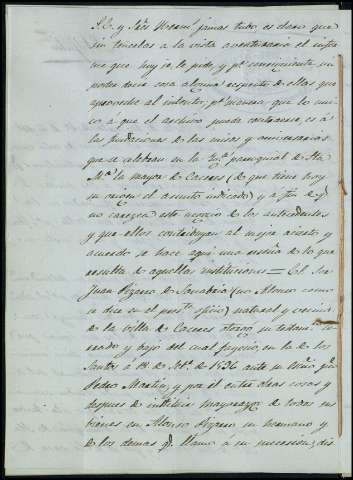 S.E. y Señ.s jamas tubo es claro que
sin tenerlos a la vista
me que hoy se le pide y p.r consiguiente no
poder decir cosa alguna respecto de ellas que
aproveche al intento; p.r manera que lo uni-
co a que el archivo puede contraerse, es á
las fundaciones de las misas y aniversarios
que se celebran en la Yg.a parroquial de Sta
M.a la mayor de Caceres (de que tiene hoy
su origen el asunto indicado) y a fin de q.e
no carezca este negocio de los antecedentes
y que ellos contribuyan al mejor acierto y
acuerdo se hace aqui una reseña de lo que
resulta de aquellas instituciones = El Sor
Juan Pizarro de (no Alonso como
se dice en el pres.te oficio) natural y vecino
de la villa de Caceres otorgó su testam.to
cerrado y bajo del cual en la de los
Santos á 18 de de 1526 ante su Esno
Pedro Martin, y por el entre otras cosas y
despues de instituir mayorazgo de todos sus
bienes en Alonso Pizarro su hermano y
de los demas q.e llamó á su sucesion, dis